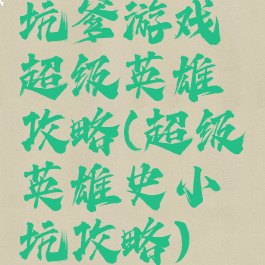 坑爹游戏
超级英雄
攻略(超级
英雄史小
坑攻略)